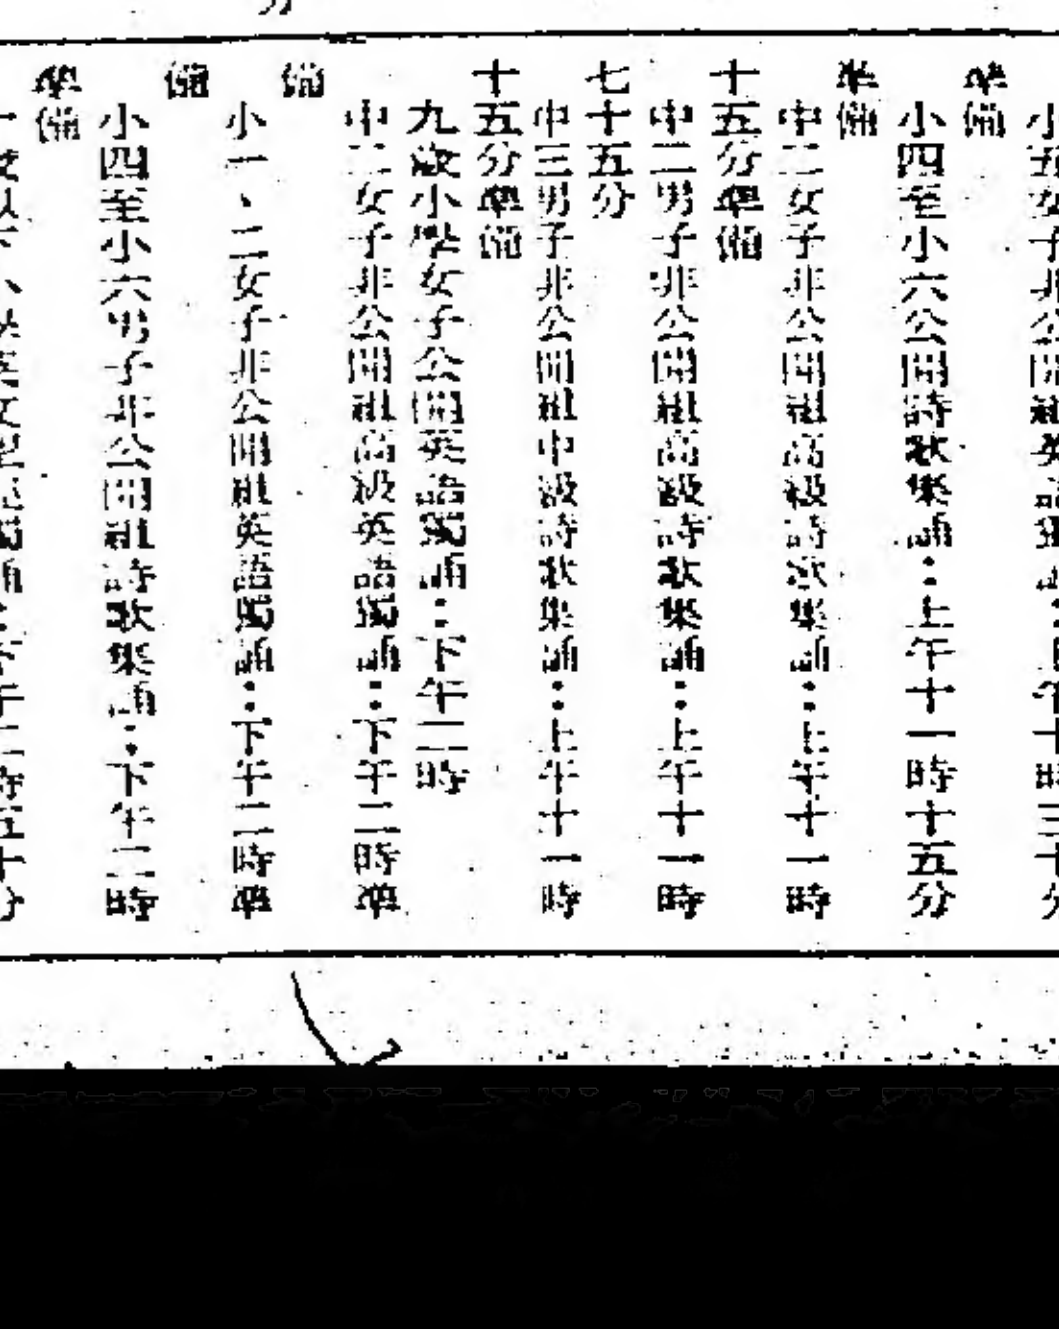 小五女子非公開組英語獨誦：上午十時三十分
準備
小四至小六公開詩歌集誦：上午十一時十五分
準備
中二女子非公開組高級詩歌集誦：上午十一時
十五分準備
中二男子非公開組高級詩歌集誦：上午十一時
七十五分
中三男子非公開組中級詩歌集誦：上午十一時
十五分準備
九歲小學女子公開英語獨誦：下午二時
中二女子非公開組高級英語獨誦：下午二時準
備
小一、二女子非公開組英語獨誦：下午二時準
備
小四至小六男子非公開組詩歌集誦：下午二時
準備
歲以下小學英文聖經獨誦：下午二時五十分